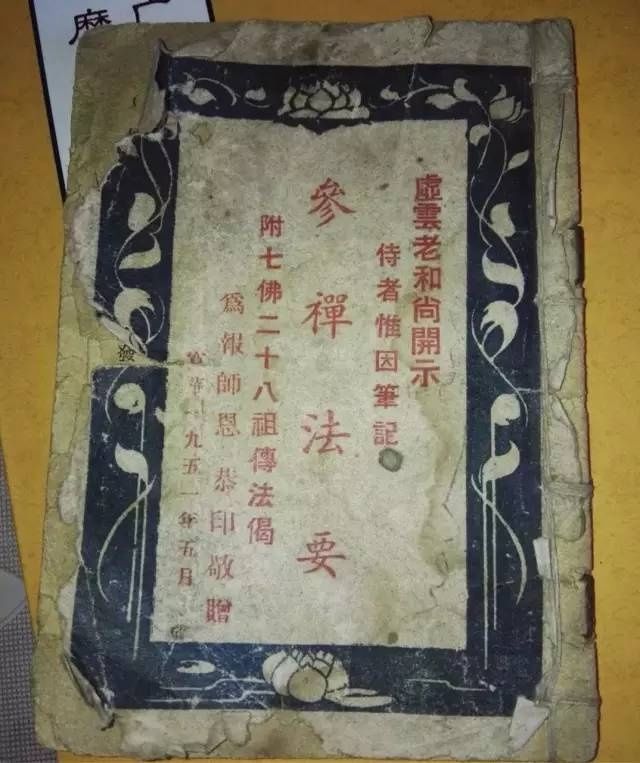 虛雲老和尚開示
侍者惟因筆記
參禪法要
附七佛二十八祖傳法偈
為報師恩 恭印敬贈
一九五一年五月